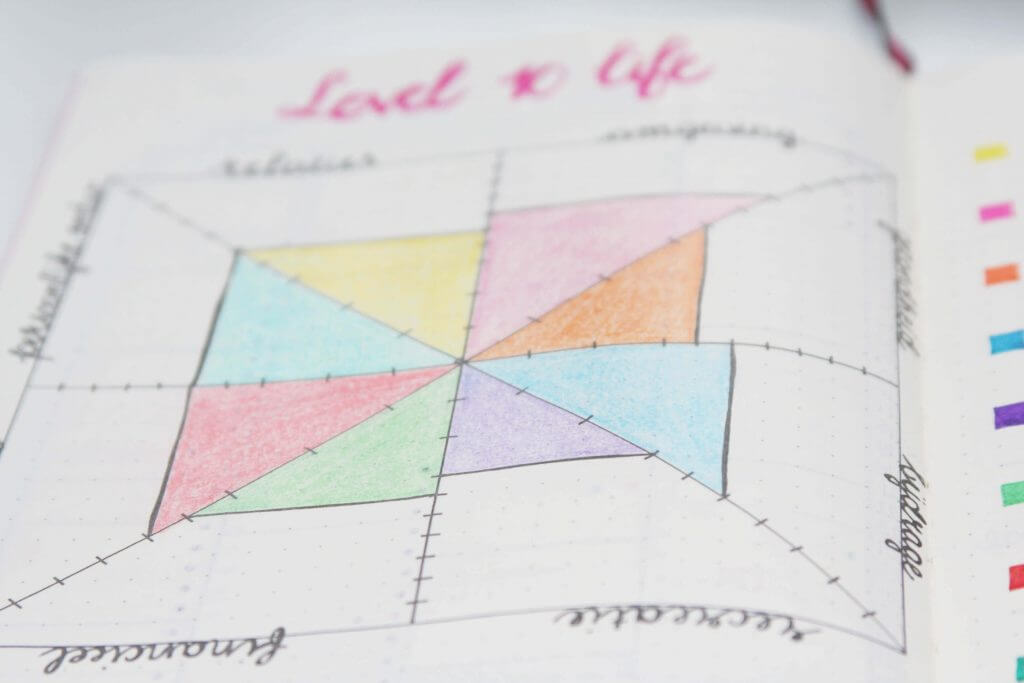 Level 10 life
relaties
omgeving
persoonlijke groei
gezondheid
bijdrage
recreatie
financieel